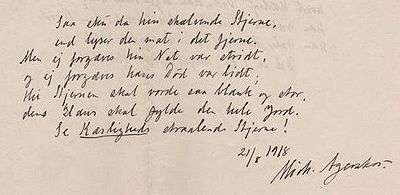 Saa sken da hin skælvende Stjerne,
end lyser den mat i det fjerne.
Men ej forgæves hin Nat var stridt,
og ej forgæves hans Død var lidt;
Thi Stjernen skal vorde saa blank og stor,
dens Glans skal fylde den hele Jord.
Se Kærligheds straalende Stjerne!
21/8 1918
Mich. Agerskov.